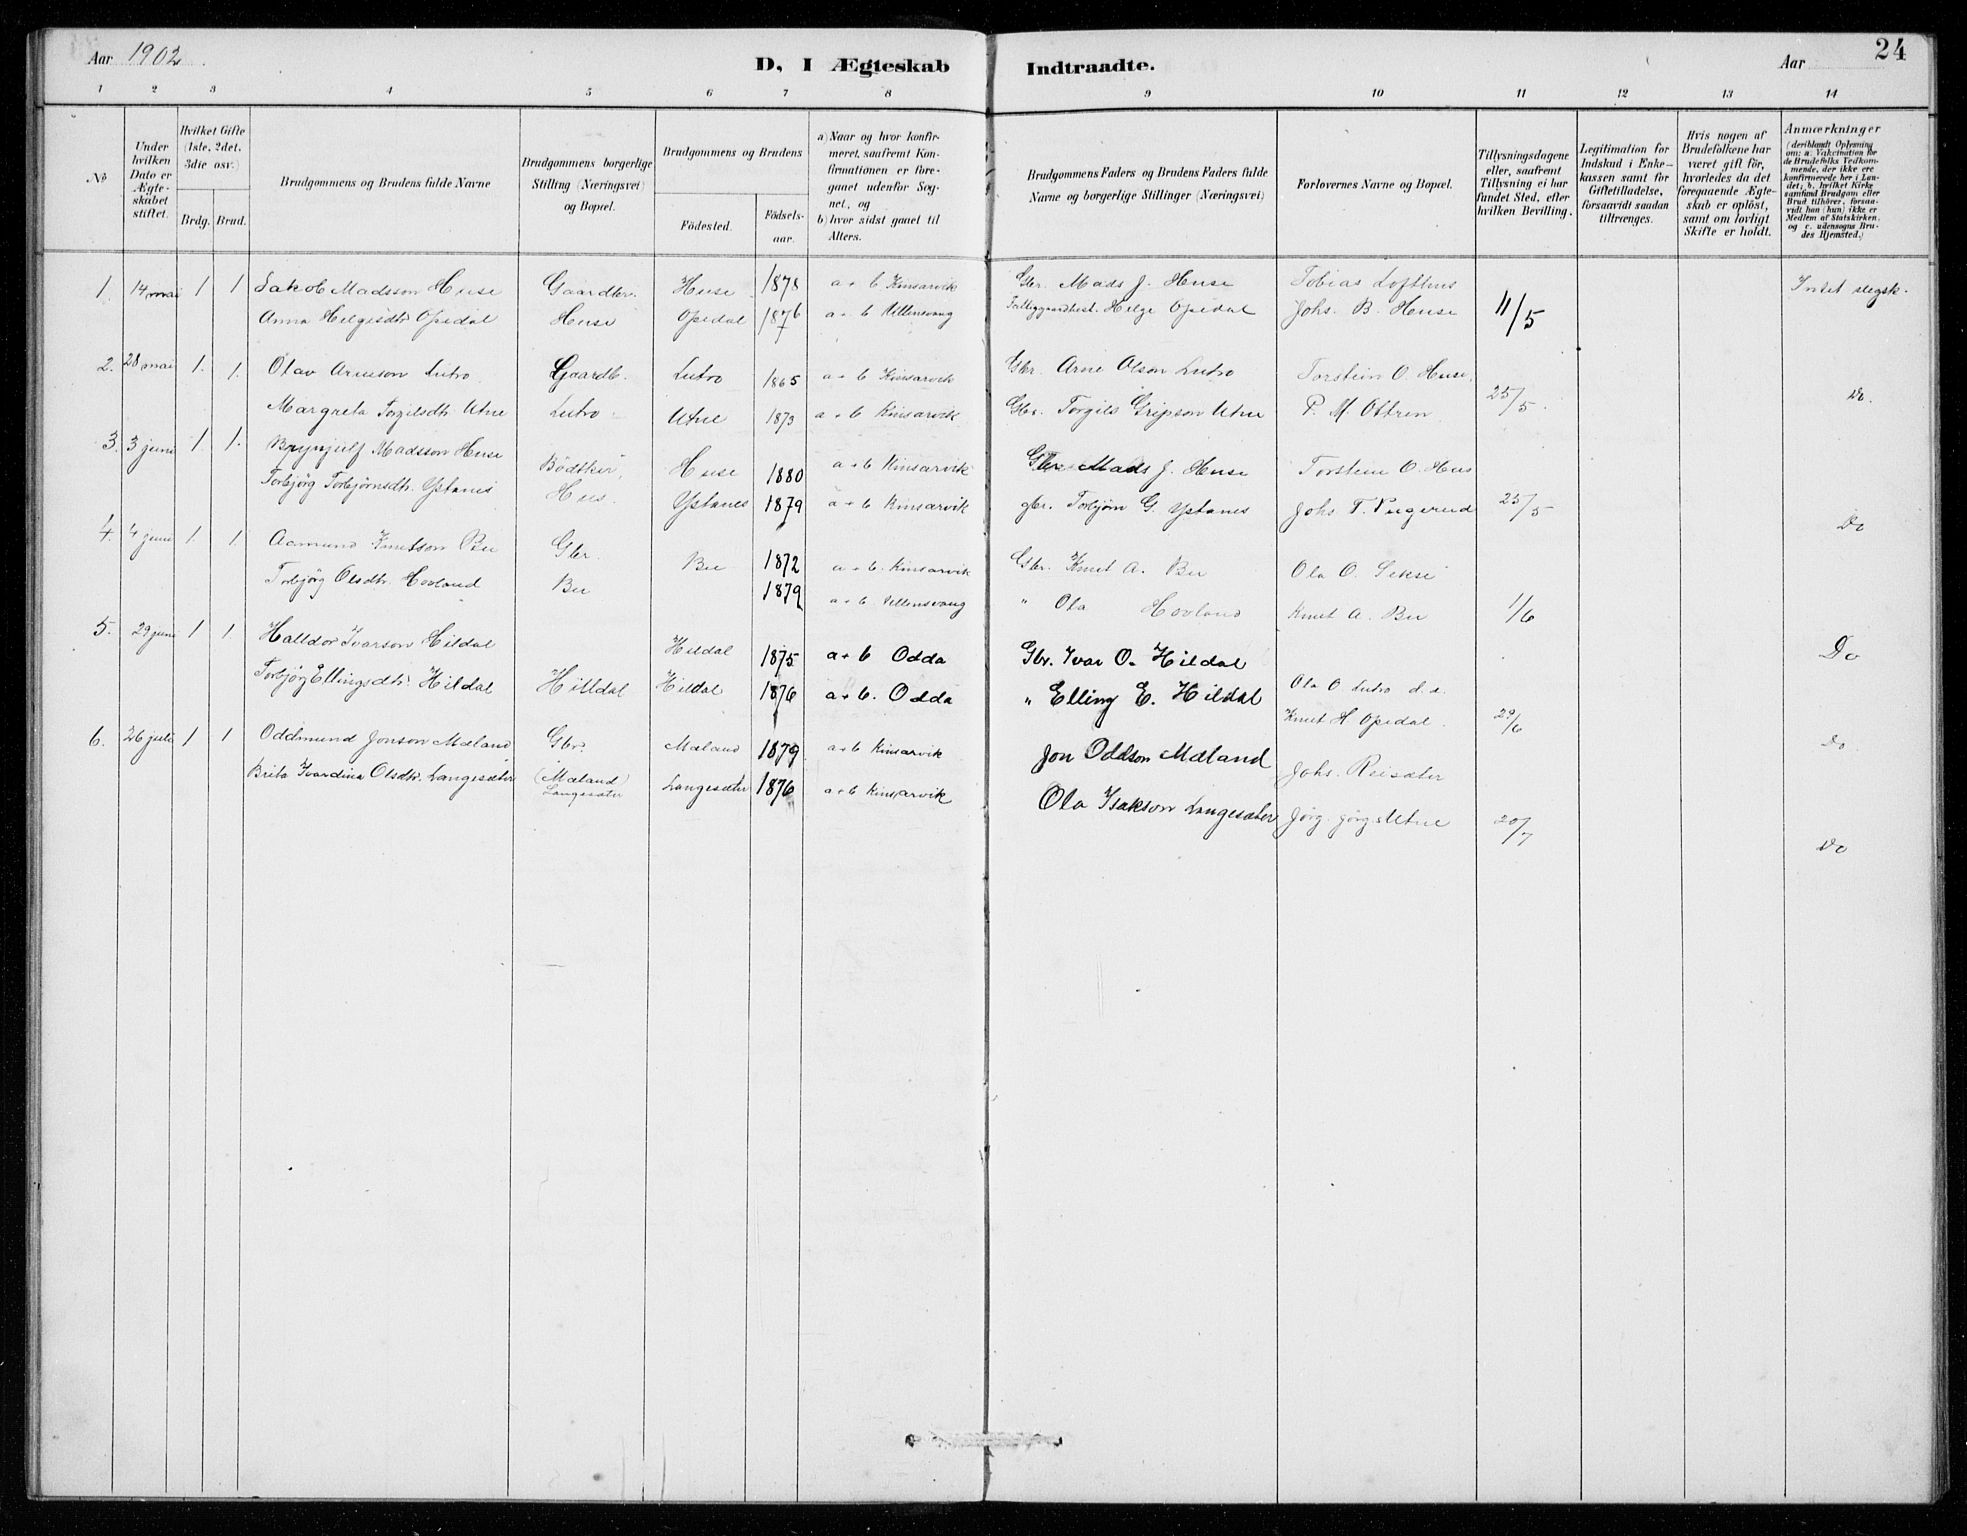 Aar 1902 D, I Ægteskab Indtraadte. Aar 24
1 2 3 4 5 6 7 8 9 10 11 12 13 14
No
Under hvilken Dato er Ægteskabet stiftet.
Hvilket Gifte (1ste, 2det, 3die osv.)
Brdg. Brud.
Brudgommens og Brudens fulde Navne
Brudgommens borgerlige Stilling (Næringsvei) og Bopæl.
Brudgommens og Brudens
Fødested. Fødselsaar.
a) Naar og hvor konfirmeret, saafremt Konfirmationen er foregaaet udenfor Sognet, og
b) hvor sidst gaaet til Alters.
Brudgommens Faders og Brudens Faders fulde Navne og borgerlige Stillinger (Næringsvei)
Forlovernes Navne og Bopæl.
Tillysningsdagene eller, saafremt Tillysning ei har fundet Sted, efter hvilken Bevilling.
Legitimation for Indskud i Enkekassen samt for Giftetilladelse, forsaavidt saadan tiltrænges.
Hvis nogen af Brudefolkene har været gift før, hvorledes da det foregaaende Ægteskab er opløst, samt om lovligt Skifte er holdt.
Anmærkninger (deriblandt Oplysning om: a. Vakcination for de Brudefolks Vedkommende, der ikke ere konfirmerede her i Landet; b. hvilket Kirkesamfund Brudgom eller Brud tilhører, forsaavidt han (hun) ikke er Medlem af Statskirken, og c. udensogns Brudes Hjemsted.)
1. 14 mai 1 1 Jakob Madsson Huse Gaardbr. Huse 1878 a + b Kinsarvik Gbr. Mads J. Huse Tobias Lofthus Intet slegsk.
Anna Helgesdtr Opedal Huse Opedal 1876 a + b Ullensvang Helge Opedal Johs. B. Huse 11/5
2. 28 mai 1. 1. Olav Arneson Lutro Gaardb. Lutro 1865 a + b Kinsarvik Gbr. Arne Olson Lutro Torstein O. Huse
Margreta Torgilsdtr Utne Lutro Utne 1873 a + b Kinsarvik Gbr. Torgils Gripson Utne P. M. 25/5. Do.
3. 3 juni 1 1. Brynjulf Madsson Huse Bødtker Huse 1880 a + b Kinsarvik Gbr Mads J. Huse Torstein O. Hus
Torbjørg Torbjørnsdtr. Ystanes Hus. Ystanes 1879 a + b Kinsarvik gbr. Torbjørn G. Ystanes Johs T. 25/5 Do
4. 4 juni 1. 1. Aamund Knutson Bu Gbr. Bu 1872 a + b. Kinsarvik Gbr. Knut A. Bu Ola O. Sekse
Torbjørg Olsdtr. Hovland Bu 1879 a + b Ullensvang " Ola Hovland Knut A. Bu 1/6
Do
5. 29 juni 1 1 Halldor Ivarson Hildal Hildal 1875 a + b Odda Gbr. Ivar O. Hildal
Torbjørg Ellingsdtr. Hildal Hilldal Hildal 1876 a + b. Odda " Elling E. Hildal Ola O. Lutro
Knut H. Opedal. 29/6 Do.
6. 26 juli 1 1 Oddmund Jonson Mæland Gbr. Mæland 1879 a + b Kinsarvik Jon Oddson Mæland Johs. Reisæter
Brita Ivardina Olsdtr. Langesæter (Mæland) Langesæter Langesæter 1876 a + b Kinsarvik Ola Isakson Langesæter Jørg. Jørgs Utne 20/7
Do